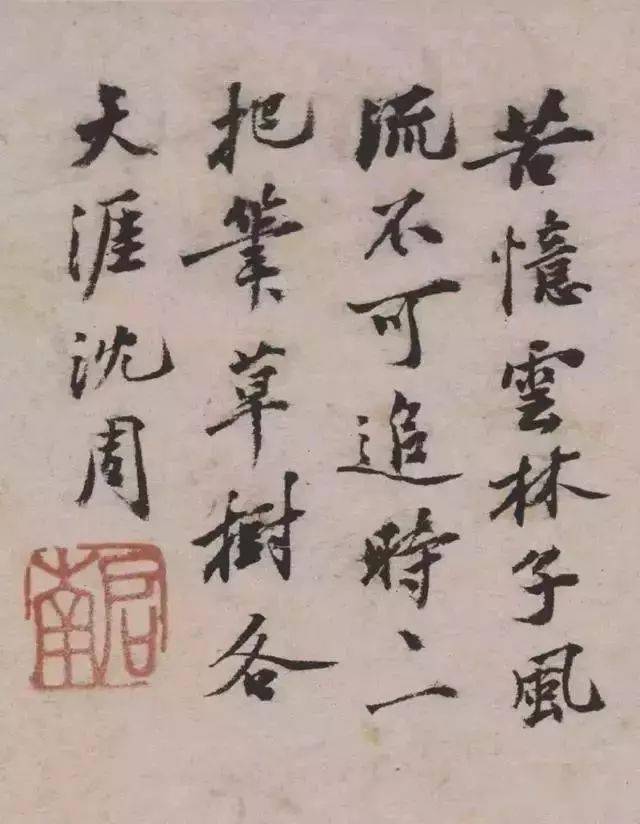 苦憶雲林子風
流不可追時〻一
把筆草樹各
天涯沈周
啟南